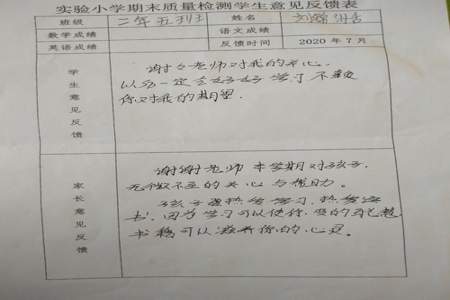 实验小学期末质量检测学生意见反馈表
班级 二年五班 姓名
数学成绩 语文成绩
英语成绩 反馈时间 2020年7月
学生意见反馈
谢谢老师对我的关心,
以后一定会好好学习不辜负
你对我的期望.
家长意见反馈
谢谢老师本学期对孩子,
无微不至的关心与帮助.
孩子要热爱学习,热爱读
书,因为学习可以使你
书籍可以滋养你的心灵.